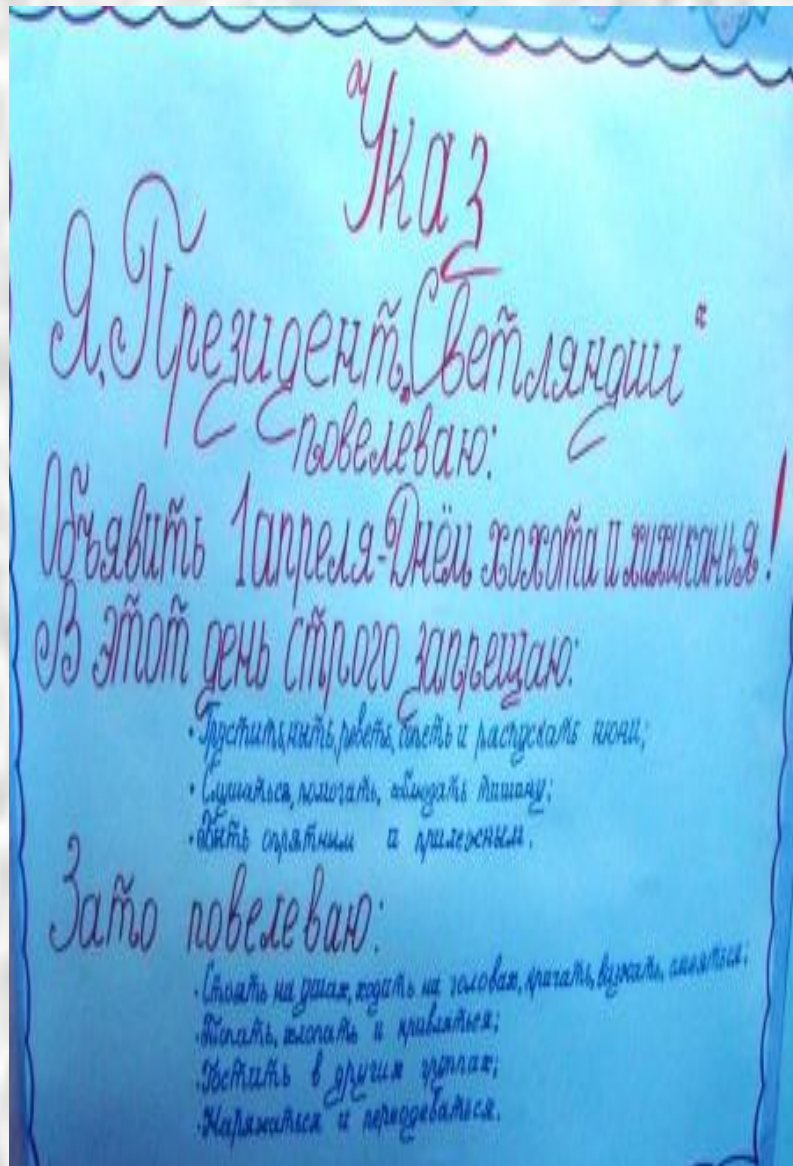 Указ
Я, Президент „Светляндии“
повелеваю:
Объявить 1 апреля-Днём хохота и хихиканья!
В этот день строго запрещаю:
• Грустить, ныть, реветь, и распускать нюни;
• Слушаться, помогать, соблюдать тишину;
• Быть опрятным и прилежным.
Зато повелеваю:
• Стоять на ушах, ходить на головах, кричать, визжать, смеяться;
• Топать, хлопать и кривляться;
• Гостить в других группах;
• Наряжаться и переодеваться.